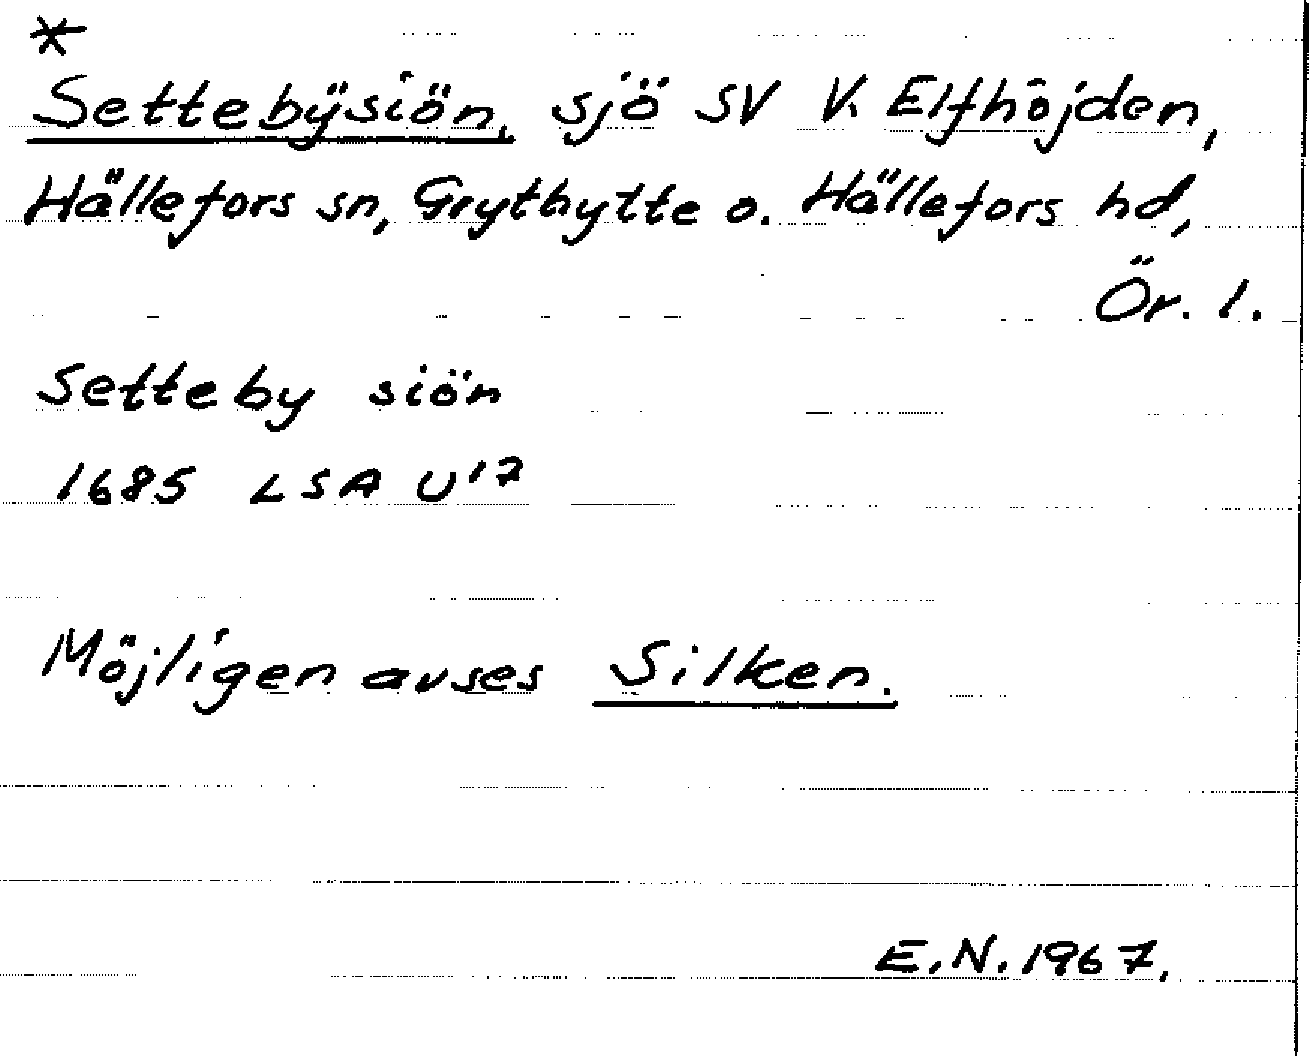 *
Settebÿsiön, sjö SV V. Elfhöjden,
Hällefors sn, Grythytte o. Hällefors hd,
Ör. l.
Setteby siön
1685 LSA U17
Möjligen avses Silken.
E.N. 1967.